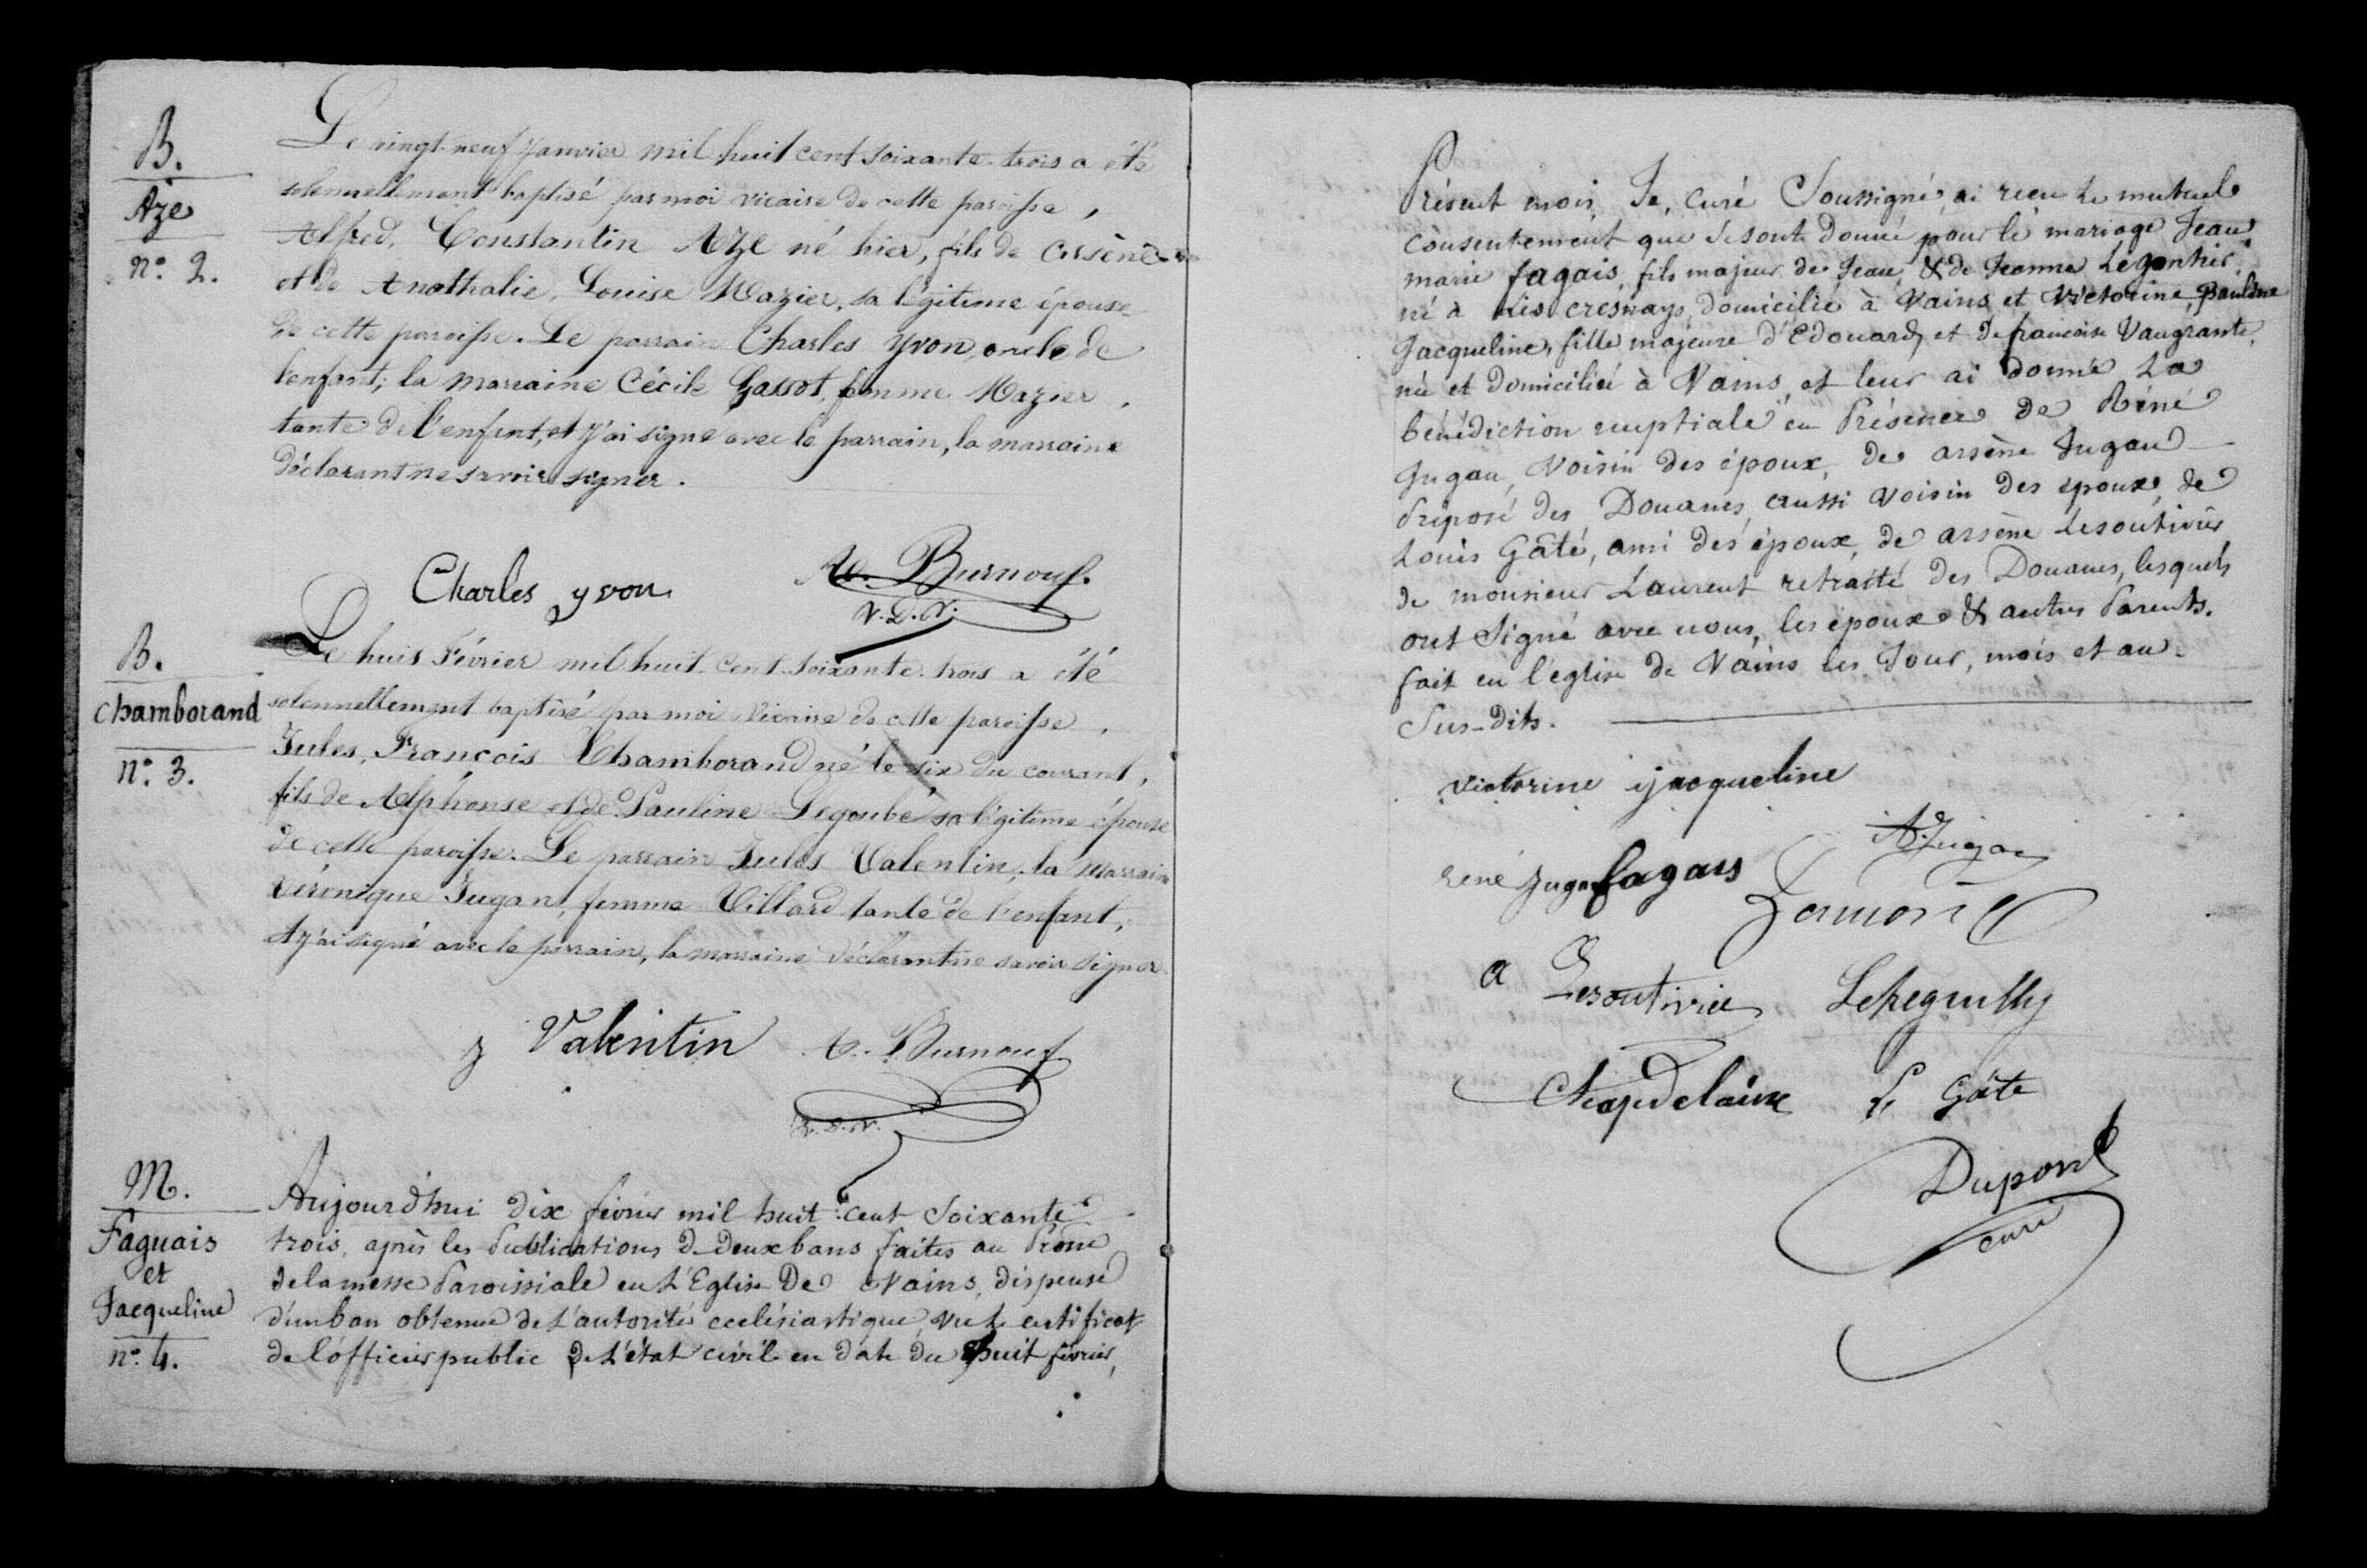 B.
Aze
n.° 2.
Le vingt-neuf janvier mil huit cent soixante-trois a été
solennellement baptisé par moi vicaire de cette paroisse,
Alfred, Constantin Aze né hier, fils de Arsène
et de Anathalie, Louise Mazier, sa légitime épouse
de cette paroisse. Le parrain Charles Yvon, oncle de
l'enfant; la marraine Cécile Gassot, femme Mazier,
tante de l'enfant, et j'ai signé avec le parrain, la marraine
déclarant ne savoir signer.
Charles yvon
Burnouf.
V.D.V.
B.
Chamborand
n.° 3.
Le huit Février mil huit-cent-soixante-trois a été
solennellement baptisé par moi vicaire de cette paroisse,
Jules, François Chamborand né le six du courant,
fils de Alphonse et de Pauline Legoubé sa légitime épouse
de cette paroisse. Le parrain Jules Valentin; la marraine
Véronique Jugant, femme Villard tante de l'enfant,
et j'ai signé avec le parrain, la marraine déclarant ne savoir signer.
J Valentin
Burnouf
V.D.V.
M.
Faguais
et
Jacqueline
n.° 4.
Aujourd'hui dix février mil huit cent soixante
trois, après les Publications de deux bans faites au Prone
de la messe Paroissiale en L'Eglise De Vains, dispense
d'un ban obtenue de L'autorité ecclésiastique, vu le certificat
de l'officier public De L'état civil en date du huit février,
Présent mois, Je, curé Soussigné, ai recu Le mutuel
consentement que se sont donné pour le mariage Jean
marie fagais, fils majeur de Jean, & de Jeanne Legonthir,
né à Les cresnays, domicilié à Vains et Victorine, Pauline
Jacqueline, fille majeure d'Edouard, et de francoise Vaugrante,
née et domiciliée à Vains, et leur ai donné La
bénédiction nuptiale en Présence de Réné
Jugan, Voisin des époux, de arsène Jugan
Préposé des Douanes, aussi voisin des époux, de
Louis Gâté, ami des époux, de arsène Lesoutivier
de monsieur Laurent retraité des Douanes, lesquels
ont Signé avec nous, les époux & autres Parents.
fait en l'église de Vains les Jour, mois et an
Sus-dits.
victorine jacqueline
A. Jugan
rené Jugan fagais
a Lesoutivier
Chapdelaine
L Gâte
Dupont
curé